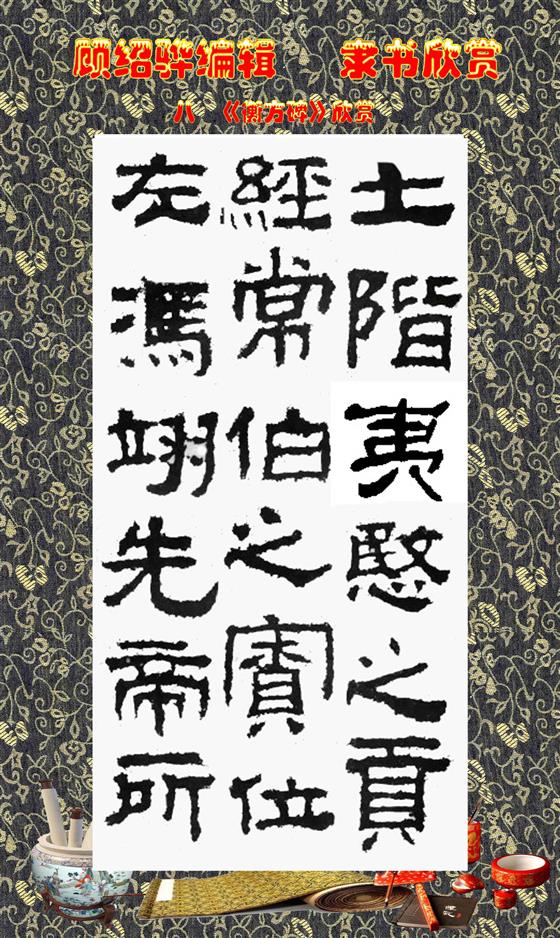 顾绍骅编辑 隶书欣赏
八 《衡方碑》欣赏
土階夷愍之貢
經常伯之寮位
左馮翊先帝所